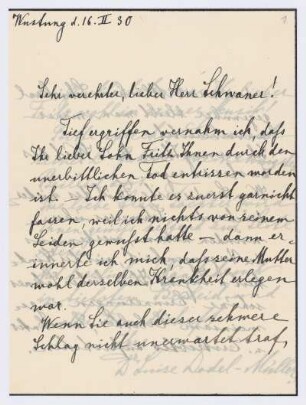 Wustung d. 16. II 30
1
Sehr verehrter, lieber Herr Schwaner!
Tief ergriffen vernahm ich, daß
Ihr lieber Sohn Fritz Ihnen durch den
unerbittlichen Tod entrissen worden
ist. – Ich konnte es zuerst garnicht
fassen, weil ich nichts von seinem
Leiden gewußt hatte – dann er-
innerte ich mich, daß seine Mutter
wohl derselben Krankheit erlegen
war.
Wenn Sie auch dieser schwere
Schlag nicht unerwartet traf,
Dr Luise Dodel-Müller